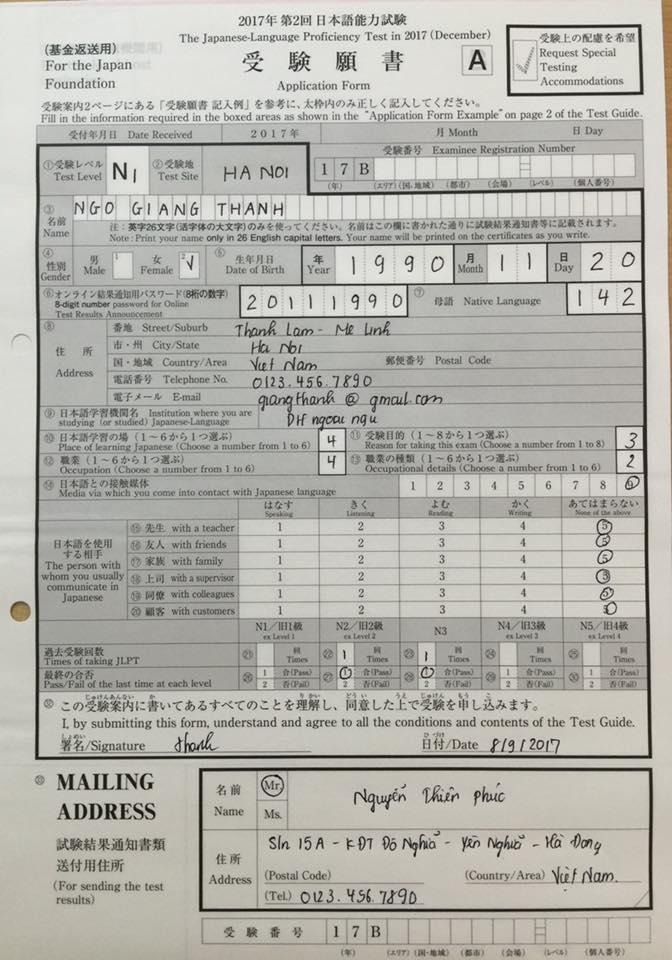 2017年 第2回 日本語能力試験
(基金返送用)
The Japanese-Language Proficiency Test in 2017 (December)
For the Japan
Foundation
受験願書
Application Form
A
✓
受験上の配慮を希望
Request Special
Testing
Accommodations
受験案内2ページにある「受験願書 記入例」を参考に、太枠内のみ正しく記入してください。
Fill in the information required in the boxed areas as shown in the "Application Form Example" on page 2 of the Test Guide.
受付年月日 Date Received 2017年 月 Month 日 Day
①受験レベル Test Level N1 ②受験地 Test Site HA NOI
受験番号 Examinee Registration Number
1 7 B
(年) (エリア)(国・地域) (都市) (会場) (レベル) (個人番号)
③ 名前 Name NGO GIANG THANH
注:英字26文字(活字体の大文字)のみを使ってください。名前はこの欄に書かれた通りに試験結果通知書等に記載されます。
Note: Print your name only in 26 English capital letters. Your name will be printed on the certificates as you write.
④ 性別 Gender 男 Male 1 女 Female 2 ✓ ⑤ 生年月日 Date of Birth 年 Year 1990 月 Month 11 日 Day 20
⑥オンライン結果通知用パスワード(8桁の数字)
8-digit number password for Online
Test Results Announcement
20111990
⑦ 母語 Native Language 142
⑧ 住所 Address
番地 Street/Suburb Thanh Lam - Me Linh
市・州 City/State Ha Noi
国・地域 Country/Area Viet Nam 郵便番号 Postal Code
電話番号 Telephone No. 0123.456.7890
電子メール E-mail giangthanh @ gmail.com
⑨日本語学習機関名 Institution where you are
studying (or studied) Japanese-Language
DH ngoai ngu
⑩日本語学習の場(1~6から1つ選ぶ)
Place of learning Japanese (Choose a number from 1 to 6) 4
⑪受験目的(1~8から1つ選ぶ)
Reason for taking this exam (Choose a number from 1 to 8) 3
⑫職業(1~6から1つ選ぶ)
Occupation (Choose a number from 1 to 6) 4
⑬職業の種類(1~6から1つ選ぶ)
Occupational details (Choose a number from 1 to 6) 2
⑭日本語との接触媒体
Media via which you come into contact with Japanese language
1 2 3 4 5 6 7 8 9
日本語を使用
する相手
The person with
whom you usually
communicate in
Japanese
はなす Speaking きく Listening よむ Reading かく Writing あてはまらない None of the above
⑮先生 with a teacher 1 2 3 4 5
⑯友人 with friends 1 2 3 4 5
⑰家族 with family 1 2 3 4 5
⑱上司 with a supervisor 1 2 3 4 5
⑲同僚 with colleagues 1 2 3 4 5
⑳顧客 with customers 1 2 3 4 5
N1/旧1級 ex Level 1 N2/旧2級 ex Level 2 N3 N4/旧3級 ex Level 3 N5/旧4級 ex Level 4
過去受験回数
Times of taking JLPT
㉑ 回 Times ㉒ 1 回 Times ㉓ 1 回 Times ㉔ 回 Times ㉕ 回 Times
最終の合否
Pass/Fail of the last time at each level
㉖ 1 合(Pass) ㉗ 1 合(Pass) ㉘ 1 合(Pass) ㉙ 1 合(Pass) ㉚ 1 合(Pass)
2 否(Fail) 2 否(Fail) 2 否(Fail) 2 否(Fail) 2 否(Fail)
この受験案内に書いてあるすべてのことを理解し、同意した上で受験を申し込みます。
I, by submitting this form, understand and agree to all the conditions and contents of the Test Guide.
署名/Signature thanh 日付/Date 8/9/2017
MAILING
ADDRESS
試験結果通知書類
送付用住所
(For sending the test
results)
名前 Name Mr. Ms. Nguyễn Thiên Phúc
住所 Address
Sln 15A - KDT Đô Nghĩa - Yên Nghĩa - Hà Đong
(Postal Code) (Country/Area) Việt Nam.
(Tel.) 0123.456.7890
受験番号 1 7 B
(年) (エリア)(国・地域) (都市) (会場) (レベル) (個人番号)